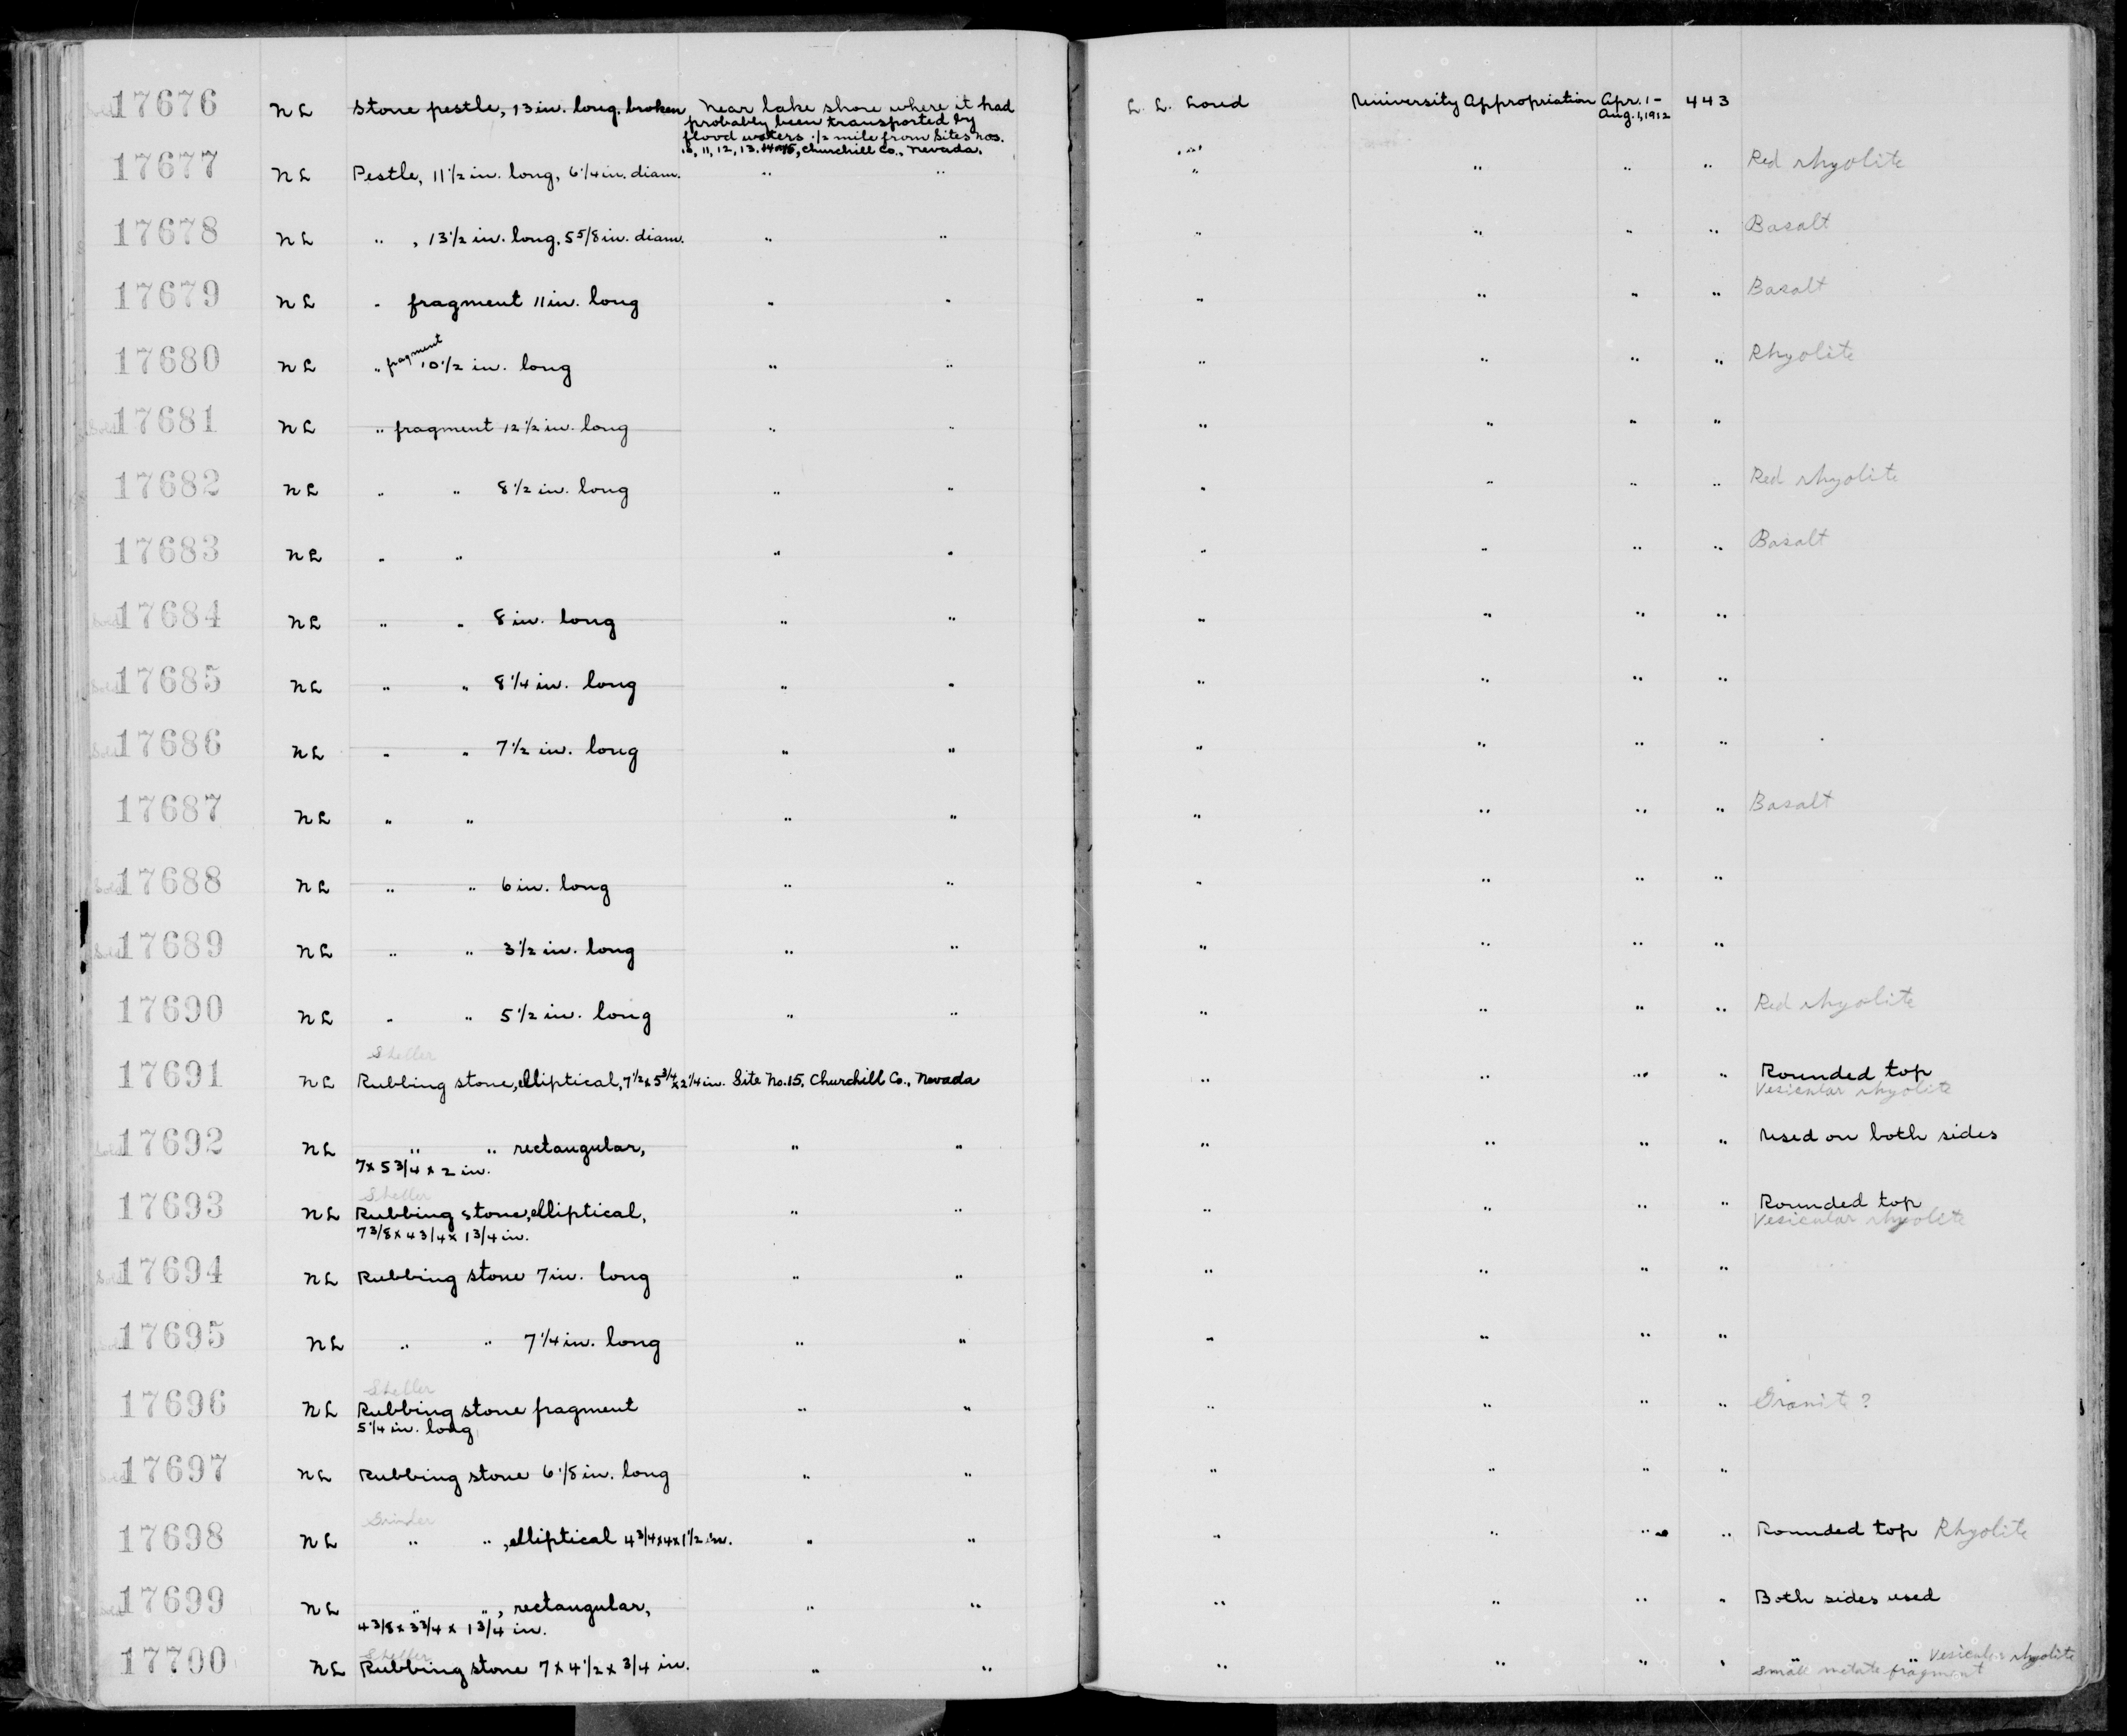 17676 NL Stone pestle, 13 in. long, broken Near lake shore where it had L. L. Loud University Appropriation Apr. 1- 443
probably been transported by Aug. 1, 1912
flood waters. 1/2 mile from Sites nos.
11, 12, 13, 14, 15, Churchill Co., Nevada.
17677 NL Pestle, 11 1/2 in. long, 6 1/4 in. diam. " " " " " " Red rhyolite
17678 NL " , 13 1/2 in. long, 5 5/8 in. diam. " " " " " " Basalt
17679 NL " fragment 11 in. long " " " " " " Basalt
17680 NL " fragment 10 1/2 in. long " " " " " " Rhyolite
Sold 17681 NL " fragment 12 1/2 in. long " " " " " "
17682 NL " " 8 1/2 in. long " " " " " " Red rhyolite
17683 NL " " " " " " " " Basalt
17684 NL " " 8 in. long " " " " " "
Sold 17685 NL " " 8 1/4 in. long " " " " " "
17686 NL " " 7 1/2 in. long " " " " " "
17687 NL " " " " " " " " Basalt
Sold 17688 NL " " 6 in. long " " " " " "
Sold 17689 NL " " 3 1/2 in. long " " " " " "
17690 NL " " 5 1/2 in. long " " " " " " Red rhyolite
Sheller
17691 NL Rubbing stone, elliptical, 7 1/2 x 5 3/4 x 2 1/4 in. Site No. 15, Churchill Co., Nevada " " " " Rounded top
Vesicular rhyolite
Sold 17692 NL " " rectangular, " " " " " " Used on both sides
7 x 5 3/4 x 2 in.
Sheller
17693 NL Rubbing stone, elliptical, " " " " " " Rounded top
7 3/8 x 4 3/4 x 1 3/4 in. Vesicular rhyolite
17694 NL Rubbing stone 7 in. long " " " " " "
17695 NL " " 7 1/4 in. long " " " " " "
Sheller
17696 NL Rubbing stone fragment " " " " " " Granit ?
5 1/4 in. long
17697 NL Rubbing stone 6 1/8 in. long " " " " " "
Grinder
17698 NL " " , elliptical 4 3/4 x 4 x 1 1/2 in. " " " " " " Rounded top Rhyolite
17699 NL " " , rectangular, " " " " " " Both sides used
4 3/8 x 3 3/4 x 1 3/4 in.
Sheller
17700 NL Rubbing stone 7 x 4 1/2 x 3/4 in. " " " " " " " " Vesicular rhyolite
small metate fragment